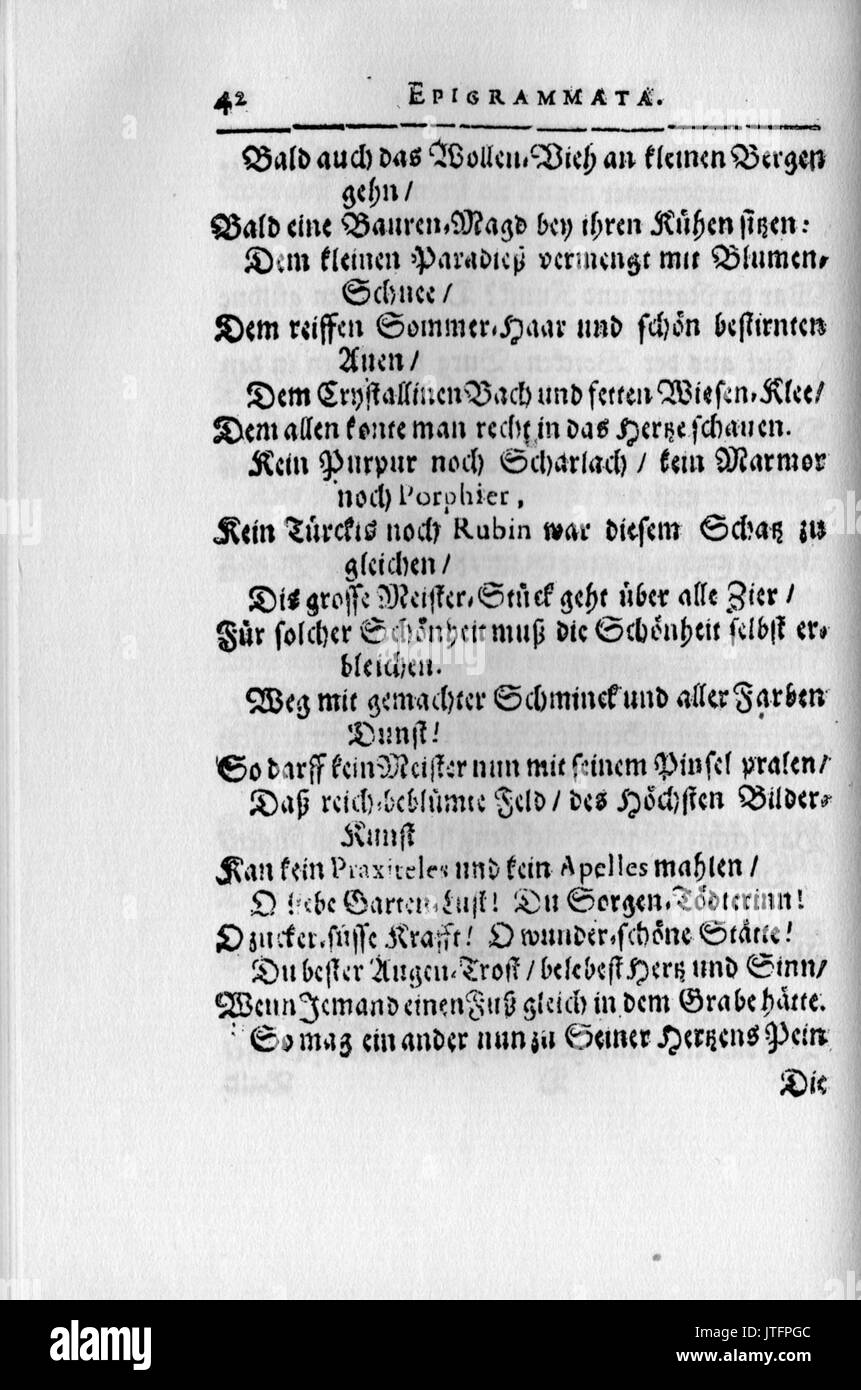 42 EPIGRAMMATA.
Bald auch das Wollen-Vieh an kleinen Bergen
gehn /
Bald eine Bauren-Magd bey ihren Kühen sitzen:
Dem kleinen Paradieß vermengt mit Blumen-
Schnee /
Dem reiffen Sommer-Haar und schön bestirnten
Auen /
Dem Crystallinen Bach und fetten Wiesen-Klee /
Dem allen konte man recht in das Hertze schauen.
Kein Purpur noch Scharlach / kein Marmor
noch Porphier,
Kein Türckis noch Rubin war diesem Schatz zu
gleichen /
Dis grosse Meister-Stück geht über alle Zier /
Für solcher Schönheit muß die Schönheit selbst er-
bleichen.
Weg mit gemachter Schminck und aller Farben
Dunst!
So darff kein Meister nun mit seinem Pinsel pralen /
Daß reich-beblümte Feld / des Höchsten Bilder-
Kunst
Kan kein Praxiteles und kein Apelles mahlen /
O liebe Garten-Lust! Du Sorgen-Tödterinn!
O zucker-süsse Krafft! O wunder-schöne Stätte!
Du bester Augen-Trost / belebest Hertz und Sinn /
Wenn Jemand einen Fuß gleich in dem Grabe hätte.
So mag ein ander nun zu Seiner Hertzens Pein
Die
alamy
alamy stock photo
JTFPGC
www.alamy.com